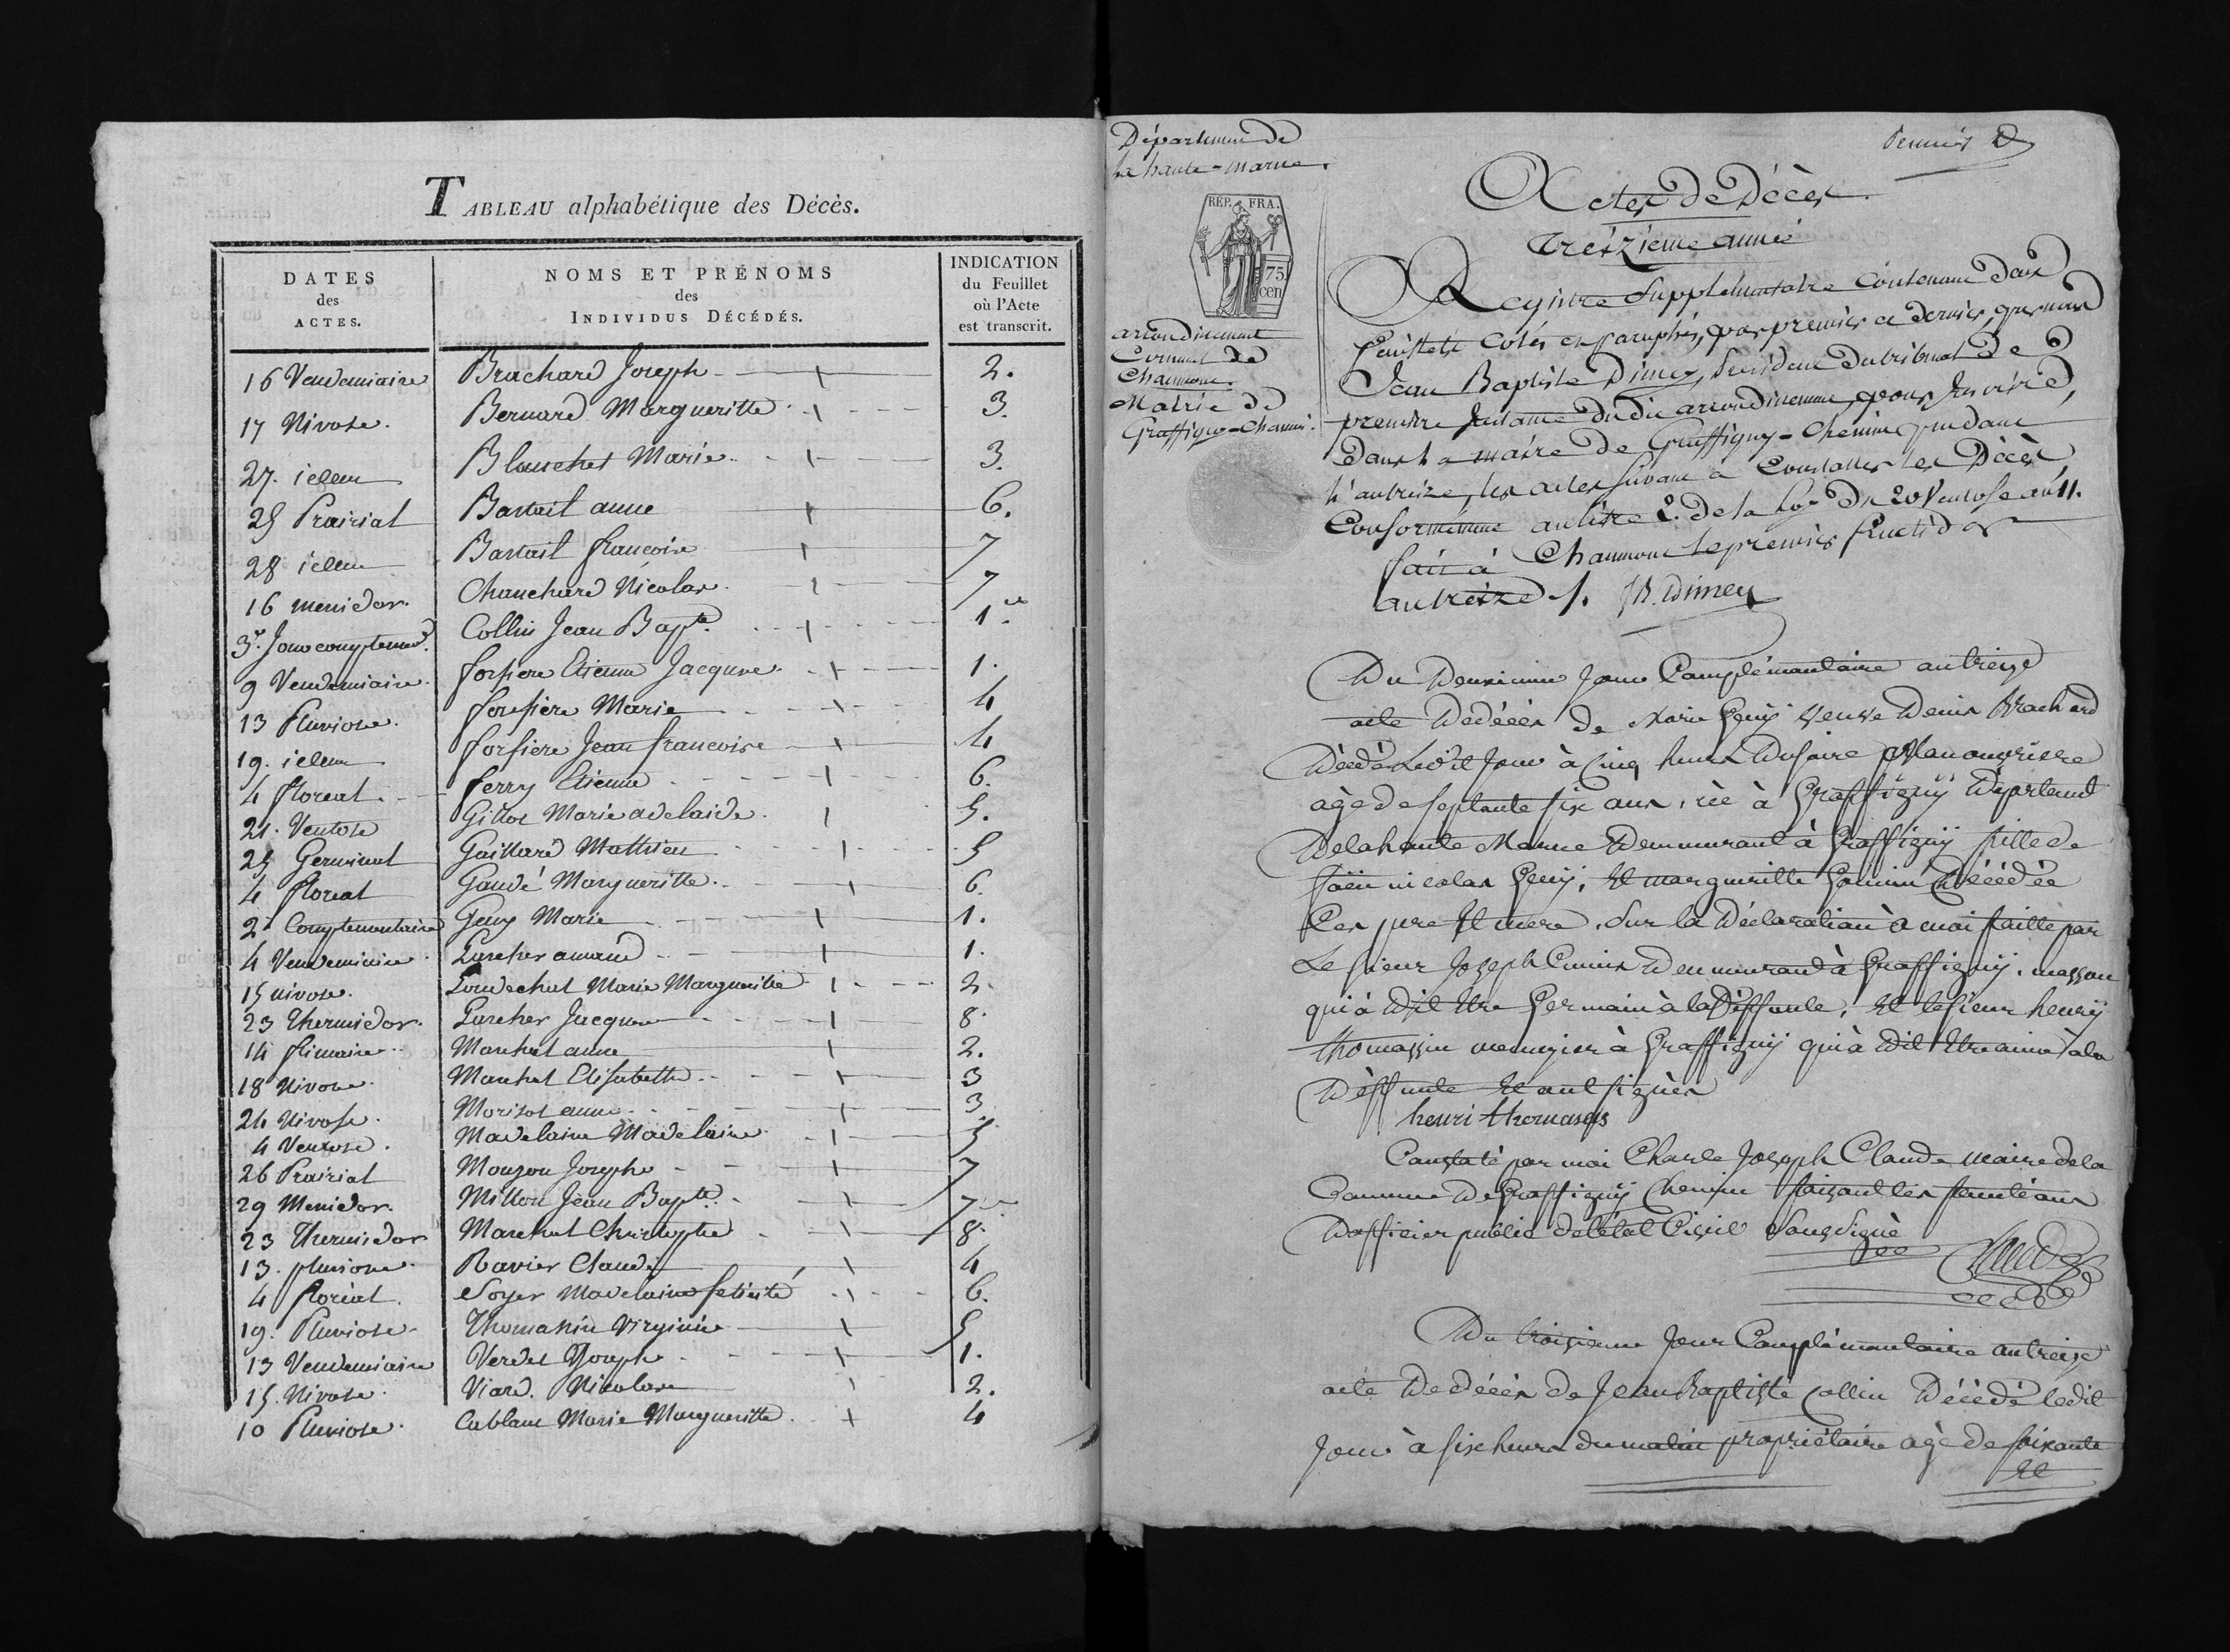 TABLEAU alphabétique des Décès.
DATES des ACTES.
NOMS ET PRÉNOMS des INDIVIDUS DÉCÉDÉS.
INDICATION du Feuillet où l'Acte est transcrit.
16 Vendemiaire Brachard Joseph 2.
17 Nivose. Bernard Margueritte 3.
27. idem Blanchet Marie 3.
25 Prairial Bastail anne 6.
28 idem Bastail françoise 7
16 messidor. Chauchard Nicolas 7
3e. Jour complement. Collin Jean Bapte. 1er.
9 Vendemiaire forfiere Etienne Jacques 1.
13 Pluviose. forfiere Marie 4
19. idem forfiere Jean francoise 4
4 floreal. ferry Etienne 6.
21. Ventose Gillot Marie adelaide. 5.
25 Germinal Gaillard Mathieu 5
4 floreal Gaudé Margueritte. 6.
2e Complementaire Geny Marie 1.
4 Vendemiaire Larcher amand 1.
15 nivose. Marie Margueritte 2.
23 Thermidor. Larcher Jacques 8.
14 frimaire Marchal anne 2.
18 Nivose. Marchal Elisabeth 3
24 Nivose. Morisot anne 3.
4 Ventose. Madelaine Madelaine 5
26 Prairial Mougon Joseph 7
29 Messidor. Millot Jean Bapte. 7
23 Thermidor Marchal Christophe 8.
13. pluviose Ravier Claude 4
4 floréal. Soyer Madelaine félicité 6.
19. Pluviose Thomassin Virginie 5
13 Vendemiaire Verdel Joseph 1.
15. Nivose. Viard. Nicolas 2.
10 Pluviose. Cablanc Marie Margueritte. 4
Premier
Département de
la haute-marne.
REP. FRA.
75 cen
arrondissement
Communal de
Chaumont.
Mairie de
Graffigny-Chemin.
Actes de Décès
treizieme année
Registre Supplémentaire Contenant deux
feuillets cotés et paraphés, par premier et dernier, par nous
Jean Baptiste Dimey, Président du tribunal de
premiere Instance dudit arrondissement, pour servir,
dans la mairie de Graffigny-Chemin pendant
l'an treize, les actes suivant à Constater les Décès
Conformément au titre 2. de la loy du 20 Ventose an 11.
fait à Chaumont le premier fructidor
an treize /. JB. Dimey
Du Deuxieme Jour Complémantaire an treize
acte Dedécès de Marie Geny veuve Denis Brachard
Décédé Ledit Jour à Cinq heures Dusoire Manouvriere
agé de septante six ans, née à Graffigny Départemt
Delahaute Marne Demmurant à Graffigny fille de
nicolas Geny, Et margueritte Décédée
Les pere Et mere. Sur la Déclaration à moi faitte par
Le sieur Joseph Demmurand à Graffigny. masson
qui à Dit Etre Germain à la Déffunte, Et le sieur henry
thomassin à Graffigny qui à Dit Etre amie à la
Déffunte Et ont signés
henri thomassis
Constaté par moi Charle Joseph Claude maire dela
Commune De Graffigny Chemin faisant les
Dofficier public deletat Civil Soussigné
Claude
Du troisieme Jour Complémantaire an treize
acte De décès de Jean Baptiste Collin Décédé ledit
Jour à six heures du matin propriétaire agé de soixante
Et